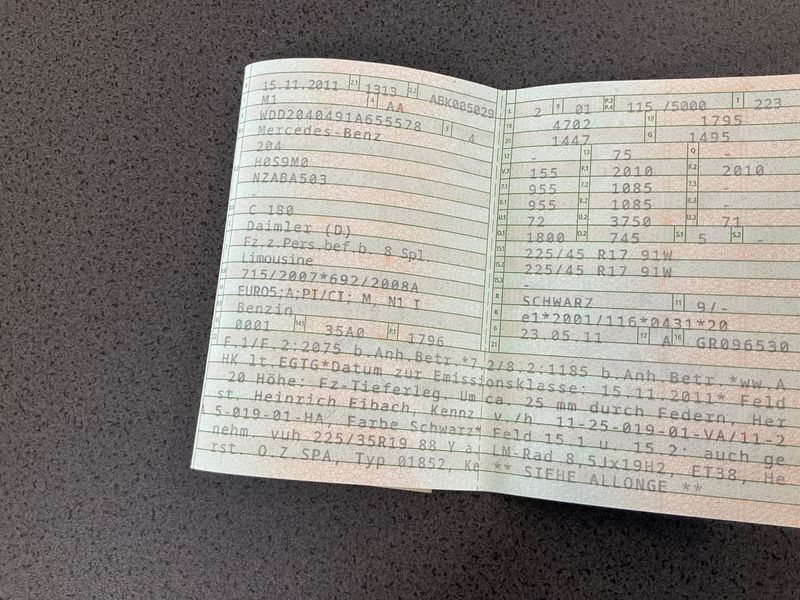 15.11.2011 2.1 1313 2.2 ABK005029
M1 4 AA
WDD2040491A655578 3 4
Mercedes-Benz
204
H0S9M0
NZABA503
C 180
Daimler (D)
Fz.z.Pers.bef.b. 8 Spl
Limousine
715/2007*692/2008A
EURO5;A;PI/CI; M, N1 I
Benzin
0001 14.1 35A0 P.1 1796
L 2 9 01 P.2 P.4 115 /5000 T 223
18 4702 19 1795
20 1447 G 1495
12 - 13 75 Q -
V.7 155 F.1 2010 F.2 2010
7.1 955 7.2 1085 7.3 -
8.1 955 8.2 1085 8.3 -
U.1 72 U.2 3750 U.3 71
O.1 1800 O.2 745 S.1 5 S.2 -
15.1 225/45 R17 91W
15.2 225/45 R17 91W
15.3 -
R SCHWARZ 11 9/-
K e1*2001/116*0431*20
6 23.05.11 17 A 16 GR096530
21
F.1/F.2:2075 b.Anh.Betr.*7.2/8.2:1185 b.Anh.Betr.*ww.A
HK lt.EGTG*Datum zur Emissionsklasse: 15.11.2011* Feld
20 Höhe: Fz-Tieferleg. um ca. 25 mm durch Federn, Her
st. Heinrich Eibach, Kennz.V./h. 11-25-019-01-VA/11-2
5-019-01-HA, Farbe Schwarz* Feld 15.1 u. 15.2: auch ge
nehm. vuh 225/35R19 88 Y a. LM-Rad 8,5Jx19H2, ET38, He
rst. O.Z SPA, Typ 01852, Ke ** SIEHE ALLONGE **